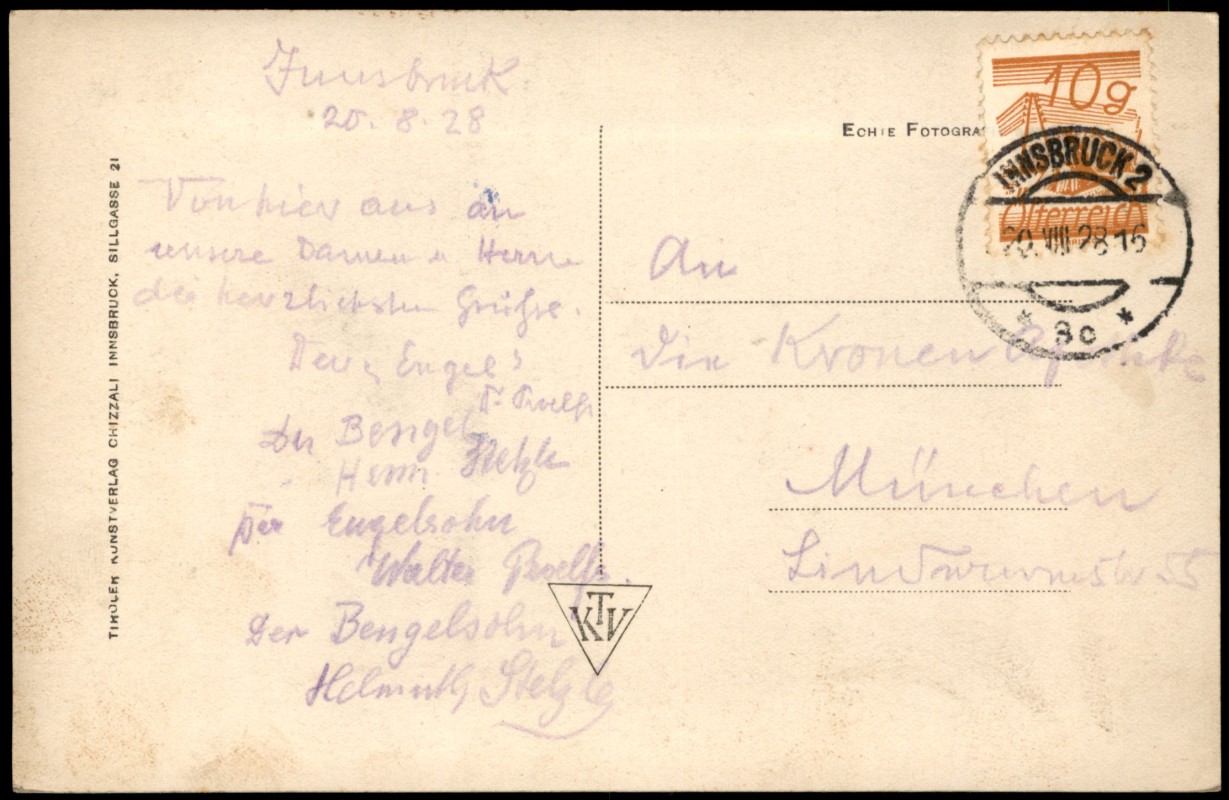 Innsbruck
20. 8. 28
Von hier aus an
unsere Damen u Herrn
die herzlichsten Grüße.
Der „Engel"
Der Bengel
Herm Stelzle
Der Engelsohn
Walter
Der Bengelsohn
Helmuth Stelzle
TIROLER KUNSTVERLAG CHIZZALI INNSBRUCK, SILLGASSE 21
KTV
ECHTE FOTOGRA
10g
Österreich
INNSBRUCK 2
20.VIII.28 16
* 3c *
An
die Kronen Apotheke
München
Lindwurmstr 55